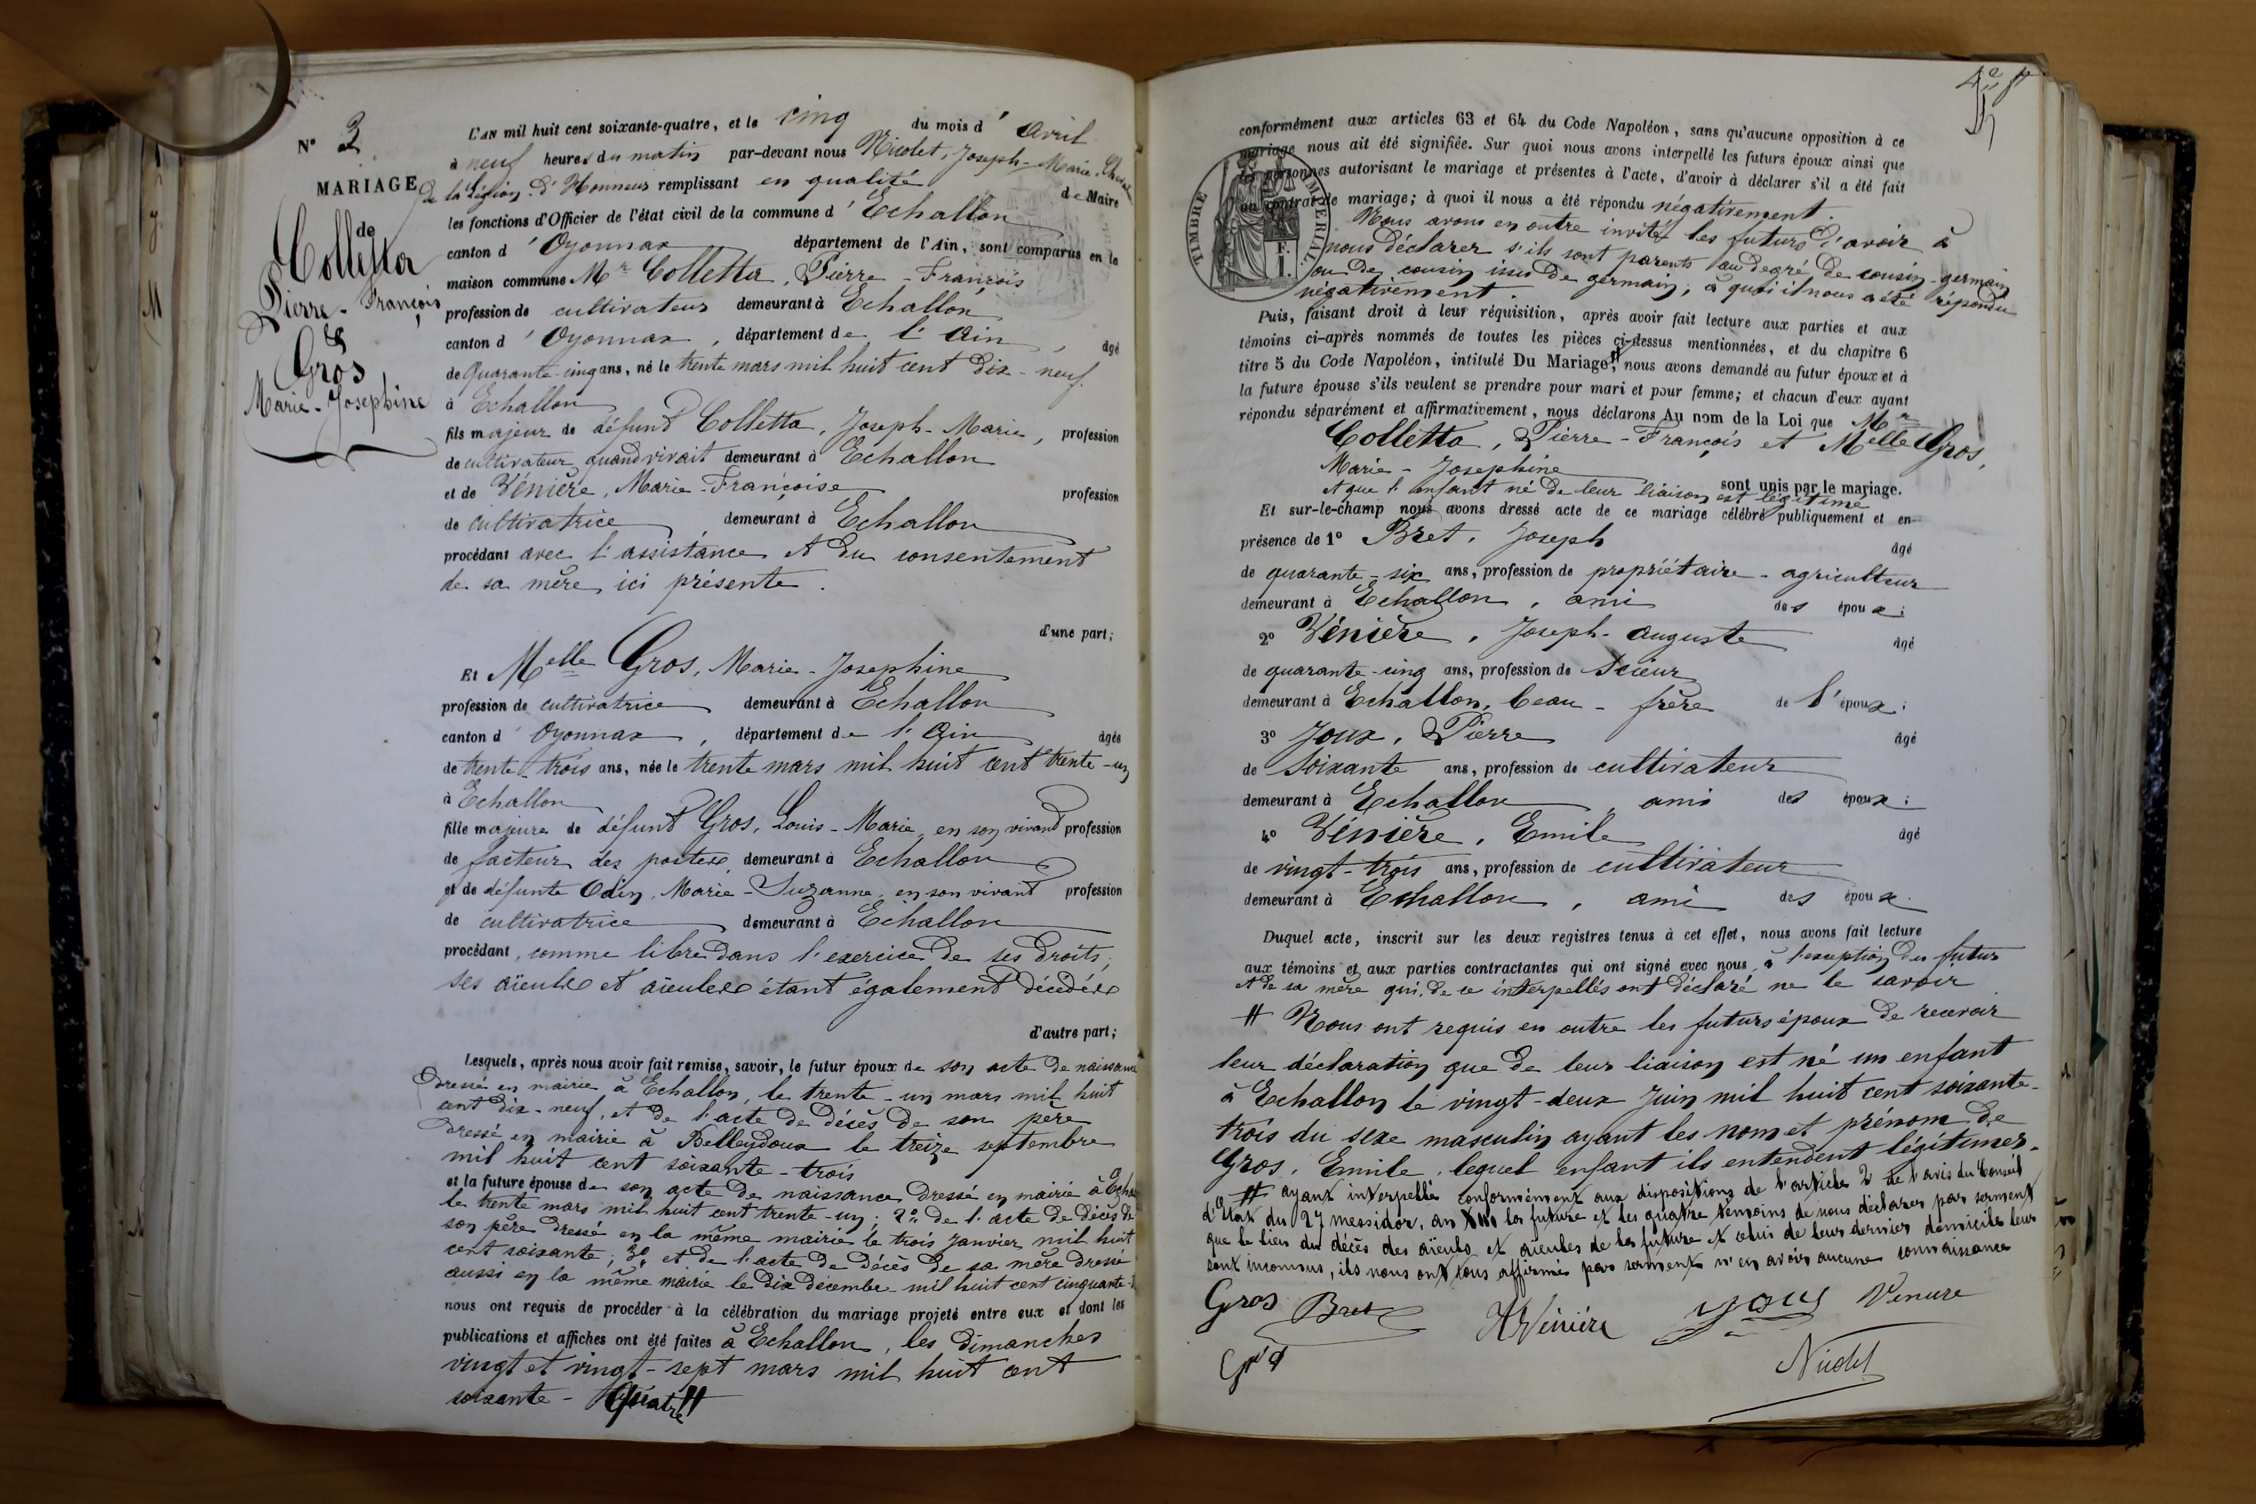 N° 3
MARIAGE
de
Colletta
Pierre-François
&
Gros
Marie-Josephine
L'AN mil huit cent soixante-quatre, et le cinq du mois d'avril
à neuf heures du matin par-devant nous Nicolet, Joseph-Marie, Chevalier
de la Légion d'Honneur remplissant en qualité de Maire
les fonctions d'Officier de l'état civil de la commune d'Echallon
canton d'Oyonnax département de l'Ain, sont comparus en la
maison commune Mr Colletta, Pierre-François
profession de cultivateur demeurant à Echallon
canton d'Oyonnax, département de l'Ain, âgé
de Quarante-cinq ans, né le trente mars mil huit cent dix-neuf
à Echallon
fils majeur de défunt Colletta, Joseph-Marie, profession
de cultivateur quand vivait demeurant à Echallon
et de Vénière, Marie-Françoise profession
de cultivatrice demeurant à Echallon
procédant avec l'assistance et du consentement
de sa mère ici présente.
d'une part;
Et Melle Gros, Marie-Josephine
profession de cultivatrice demeurant à Echallon
canton d'Oyonnax, département de l'Ain âgée
de trente-trois ans, née le trente mars mil huit cent trente-un
à Echallon
fille majeure de défunt Gros, Louis-Marie, en son vivant profession
de facteur des postes demeurant à Echallon
et de défunte Odin, Marie-Suzanne, en son vivant profession
de cultivatrice demeurant à Echallon
procédant, comme libre dans l'exercice de ses droits,
ses aïeuls et aïeules étant également décédés
d'autre part;
Lesquels, après nous avoir fait remise, savoir, le futur époux de son acte de naissance
dressé en mairie à Echallon, le trente-un mars mil huit
cent dix-neuf, et de l'acte de décès de son père
dressé en mairie à Belleydoux le treize septembre
mil huit cent soixante-trois
et la future épouse de son acte de naissance dressé en mairie à Echallon
le trente mars mil huit cent trente-un; 2° de l'acte de décès de
son père dressé en la même mairie le trois janvier mil huit
cent soixante; 3° et de l'acte de décès de sa mère dressé
aussi en la même mairie le dix décembre mil huit cent cinquante
nous ont requis de procéder à la célébration du mariage projeté entre eux et dont les
publications et affiches ont été faites à Echallon, les dimanches
vingt et vingt-sept mars mil huit cent
soixante-Quatre #
4e
conformément aux articles 63 et 64 du Code Napoléon, sans qu'aucune opposition à ce
mariage nous ait été signifiée. Sur quoi nous avons interpellé les futurs époux ainsi que
les personnes autorisant le mariage et présentes à l'acte, d'avoir à déclarer s'il a été fait
un contrat de mariage; à quoi il nous a été répondu négativement.
TIMBRE IMPERIAL
1 F.
Nous avons en outre invité les futurs d'avoir à
nous déclarer s'ils sont parents au degré de cousin-germain
ou de cousin issu de germain, à quoi il nous a été répondu
négativement.
Puis, faisant droit à leur réquisition, après avoir fait lecture aux parties et aux
témoins ci-après nommés de toutes les pièces ci-dessus mentionnées, et du chapitre 6
titre 5 du Code Napoléon, intitulé Du Mariage, # nous avons demandé au futur époux et à
la future épouse s'ils veulent se prendre pour mari et pour femme; et chacun d'eux ayant
répondu séparément et affirmativement, nous déclarons Au nom de la Loi que Mr
Colletta, Pierre-François et Melle Gros,
Marie-Josephine sont unis par le mariage.
et que l'enfant né de leur liaison est légitimé
Et sur-le-champ nous avons dressé acte de ce mariage célébré publiquement et en
présence de 1° Bret, Joseph âgé
de quarante-six ans, profession de propriétaire-agriculteur
demeurant à Echallon, ami des époux;
2° Vénière, Joseph-Auguste âgé
de quarante-cinq ans, profession de Scieur
demeurant à Echallon, beau-frère de l'époux;
3° Joux, Pierre âgé
de Soixante ans, profession de cultivateur
demeurant à Echallon, ami des époux;
4° Vénière, Emile âgé
de vingt-trois ans, profession de cultivateur
demeurant à Echallon, ami des époux.
Duquel acte, inscrit sur les deux registres tenus à cet effet, nous avons fait lecture
aux témoins et aux parties contractantes qui ont signé avec nous, à l'exception du futur
et de sa mère qui, de ce interpellés ont déclaré ne le savoir
# Nous ont requis en outre les futurs époux de recevoir
leur déclaration que de leur liaison est né un enfant
à Echallon le vingt-deux Juin mil huit cent soixante-
trois du sexe masculin ayant les nom et prénom de
Gros, Emile, lequel enfant ils entendent légitimer.
# ayant interpellé conformément aux dispositions de l'article 2 de l'avis du Conseil
d'Etat du 27 messidor, an XIII la future et les quatre témoins de nous déclarer par serment
que le lieu du décès des aïeuls et aïeules de la future et celui de leurs derniers domiciles leur
sont inconnus, ils nous ont tous affirmé par serment n'en avoir aucune connaissance
Gros Bret Vénière Joux Veniere
Nicolet